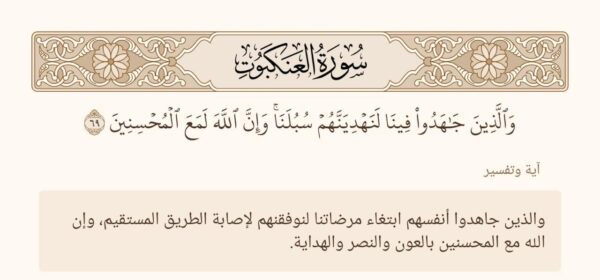 سُورَةُ الْعَنكَبُوتِ
وَٱلَّذِينَ جَـٰهَدُوا۟ فِينَا لَنَهْدِيَنَّهُمْ سُبُلَنَا ۚ وَإِنَّ ٱللَّهَ لَمَعَ ٱلْمُحْسِنِينَ ٦٩
آية وتفسير
والذين جاهدوا أنفسهم ابتغاء مرضاتنا لنوفقنهم لإصابة الطريق المستقيم، وإن
الله مع المحسنين بالعون والنصر والهداية.